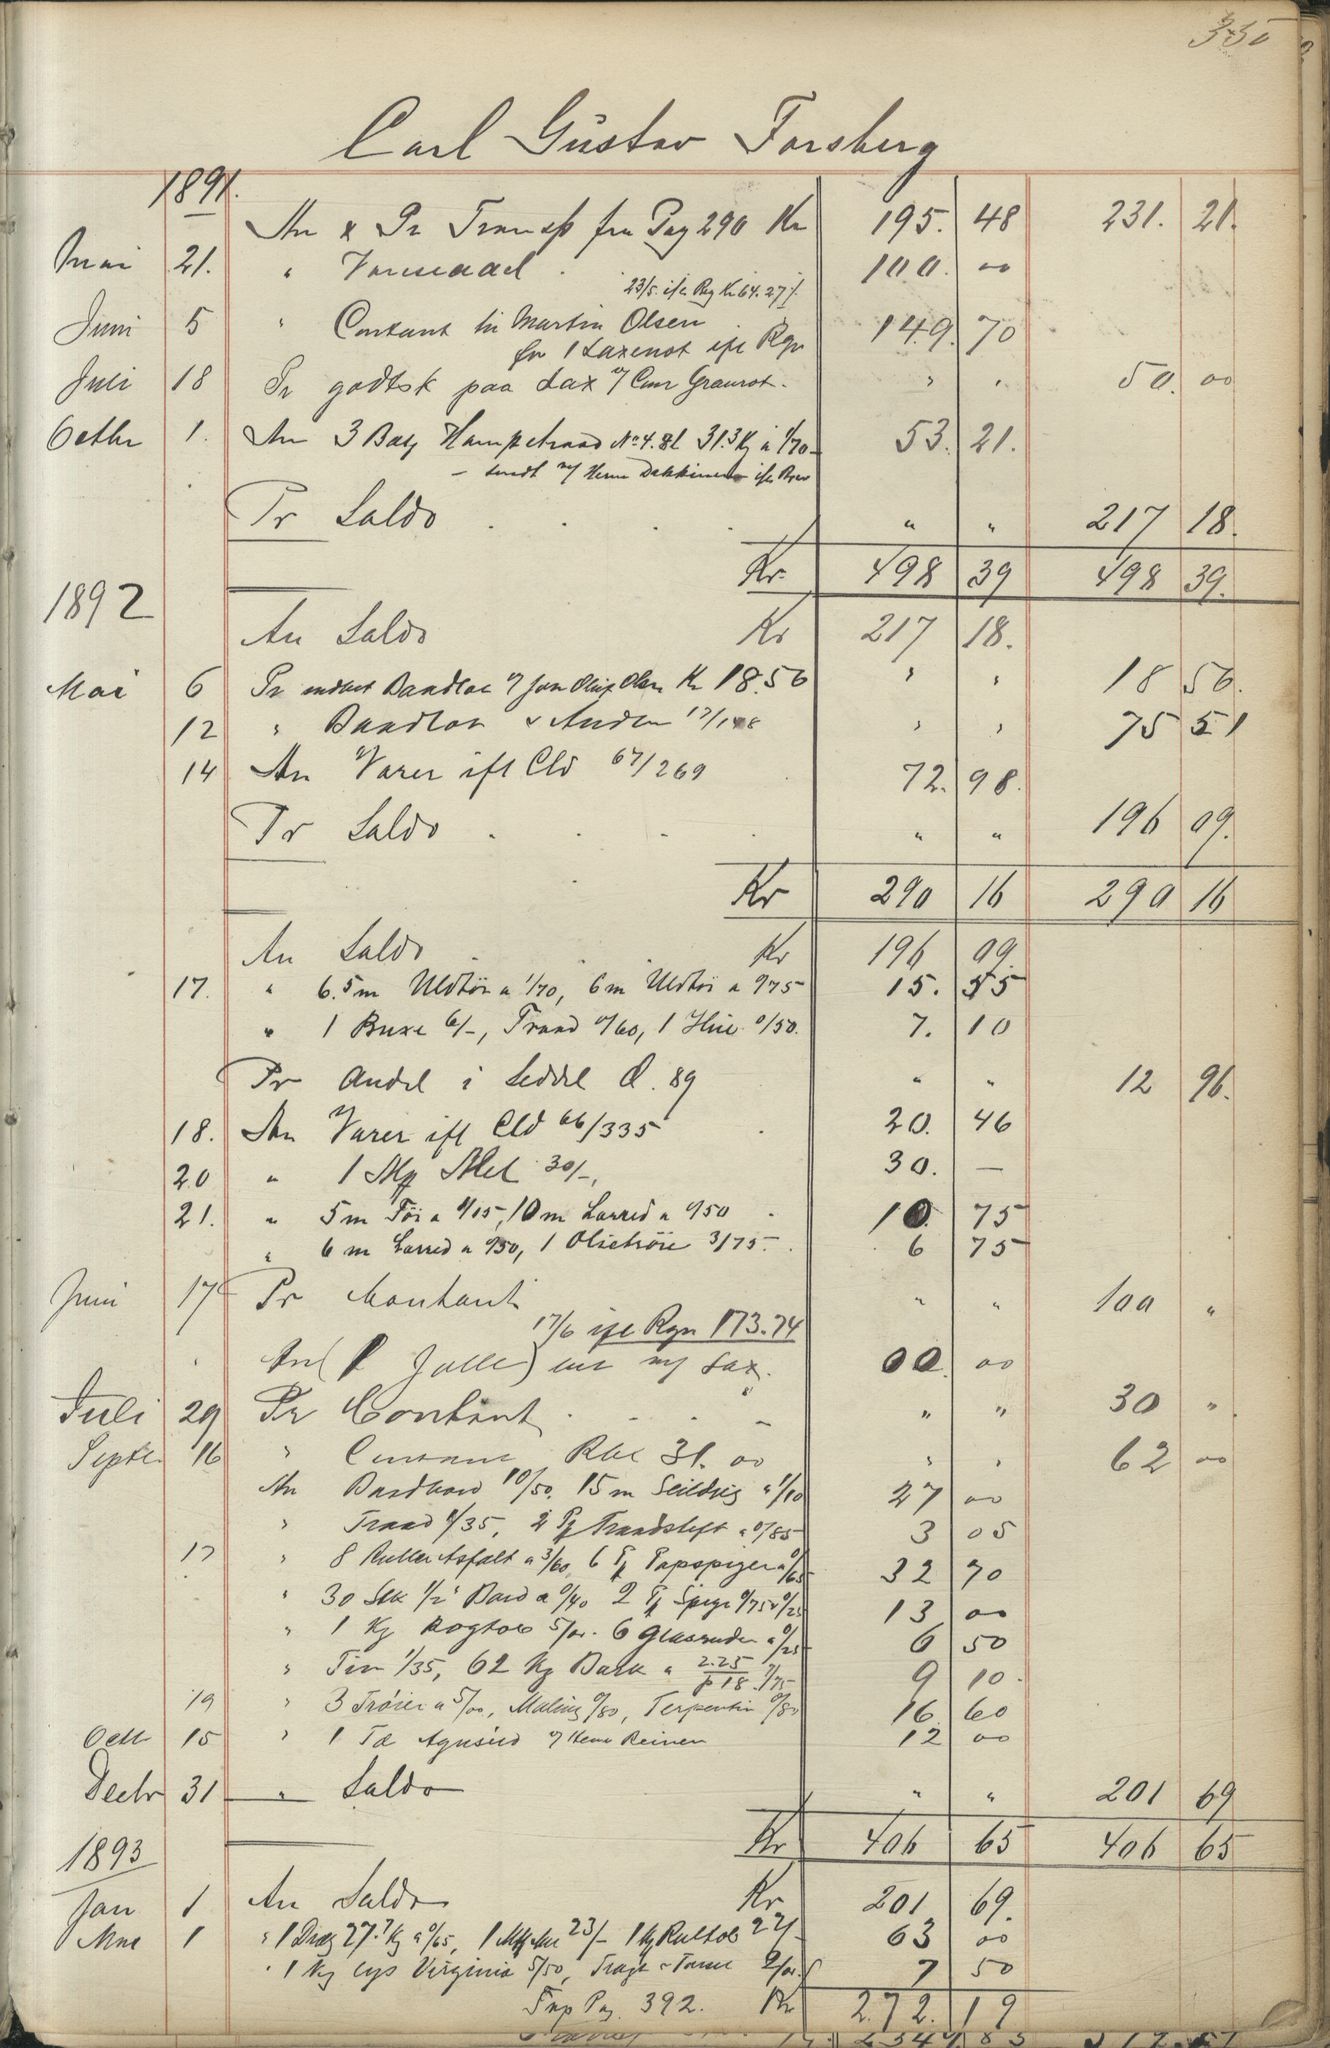 350
Carl Gustav Forsberg
1891.
An & Pr Transp fra Pag 290 Kr 195. 48 231. 21.
Mai 21. " 100. 00
23/5 ifl Rg Kr 64.27
Juni 5 " Contant til Martin Olsen
for 1 Laxenot ifl Rgn 149. 70
Juli 18 Pr godtsk paa Lax " " 50. 00
Octbr 1. An 3 No 4. 31.3 Kg à 1/70 53. 21.
sendt ifl Brev
Pr Saldo " " 217 18.
Kr 498 39 498 39.
1892
An Saldo Kr 217 18.
Mai 6 Pr Olsen Kr 18.56 " " 18 56.
12 " " " 75 51
14 An Varer ifl Cld 67/269 72. 98.
Pr Saldo " " 196 09.
Kr 290 16 290 16
An Saldo Kr 196 09.
17. " 6.5 m Uldtöi a 1/70, 6 m Uldtöi a 0/75 15. 55
" 1 Buxe 6/-, Traad 0/60, 1 Hue 0/50. 7. 10
Pr Andel i Seddel d. 89 " " 12 96.
18. An Varer ifl Cld 66/335 20. 46
20 " 1 Mel 30/-, 30. —
21. " 5 m Töi a 1/15, 10 m Lærred a 0/50 10. 75
" 6 m Lærred a 0/50, 1 Olietröie 3/75 6 75
Juni 17 Pr Contant " " 100 "
17/6 ifl Rgn 173.74
An (1 Jolle) Lax. 00. 00
Juli 29 Pr Contant " " 30 "
Septr 16 " Rbl 31. 00 " " 62 00
An 10/50. 15 m Seildug a 1/10 27 00
" Traad 1/35, 2 Pk Traadstift a 0/85 3 05
17 " 8 Ruller Asfalt a 3/60, 6 Pk Papspiger a 0/65 32 70
" 30 Stk 1/2" Bord a 0/40 2 Pk Spiger 0/75 0/25 13 00
" 1 Kg Rogtob 5/00. 6 Glasruder a 0/25 6 50
" Tin 1/35, 62 Kg Bark a 2.25/p 18 7/75 9 10.
19 " 3 Tröier a 5/00, Maling 0/80, Terpentin 0/80 16. 60
Octr 15 " 1 Td Agnsild Reinen 12 00
Decbr 31 " Saldo " " 201 69
Kr 406 65 406 65
1893
Jan 1 An Saldo Kr 201 69.
1 " 27.7 Kg a 0/65, 23/- 1 Kg 63 00
" 1 Kg Virginia 5/50, 2/00 7 50
Trsp Pag 392. Kr 272. 19